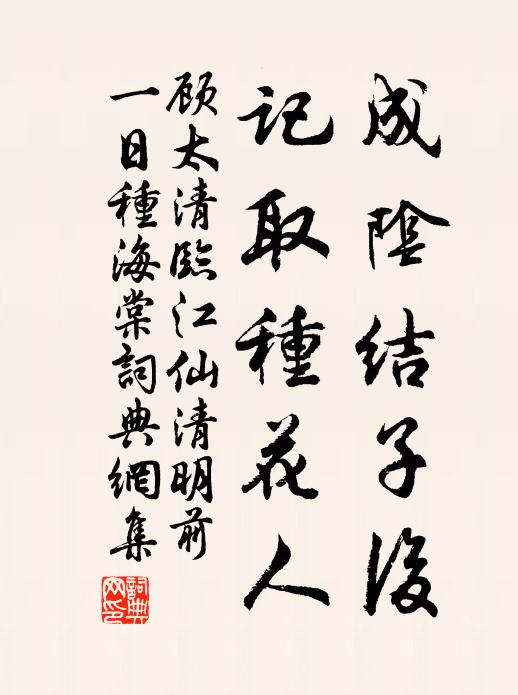 成陰結子後
記取種花人
顾太清臨江仙清明前
一日種海棠詞典網集
詞典
网印